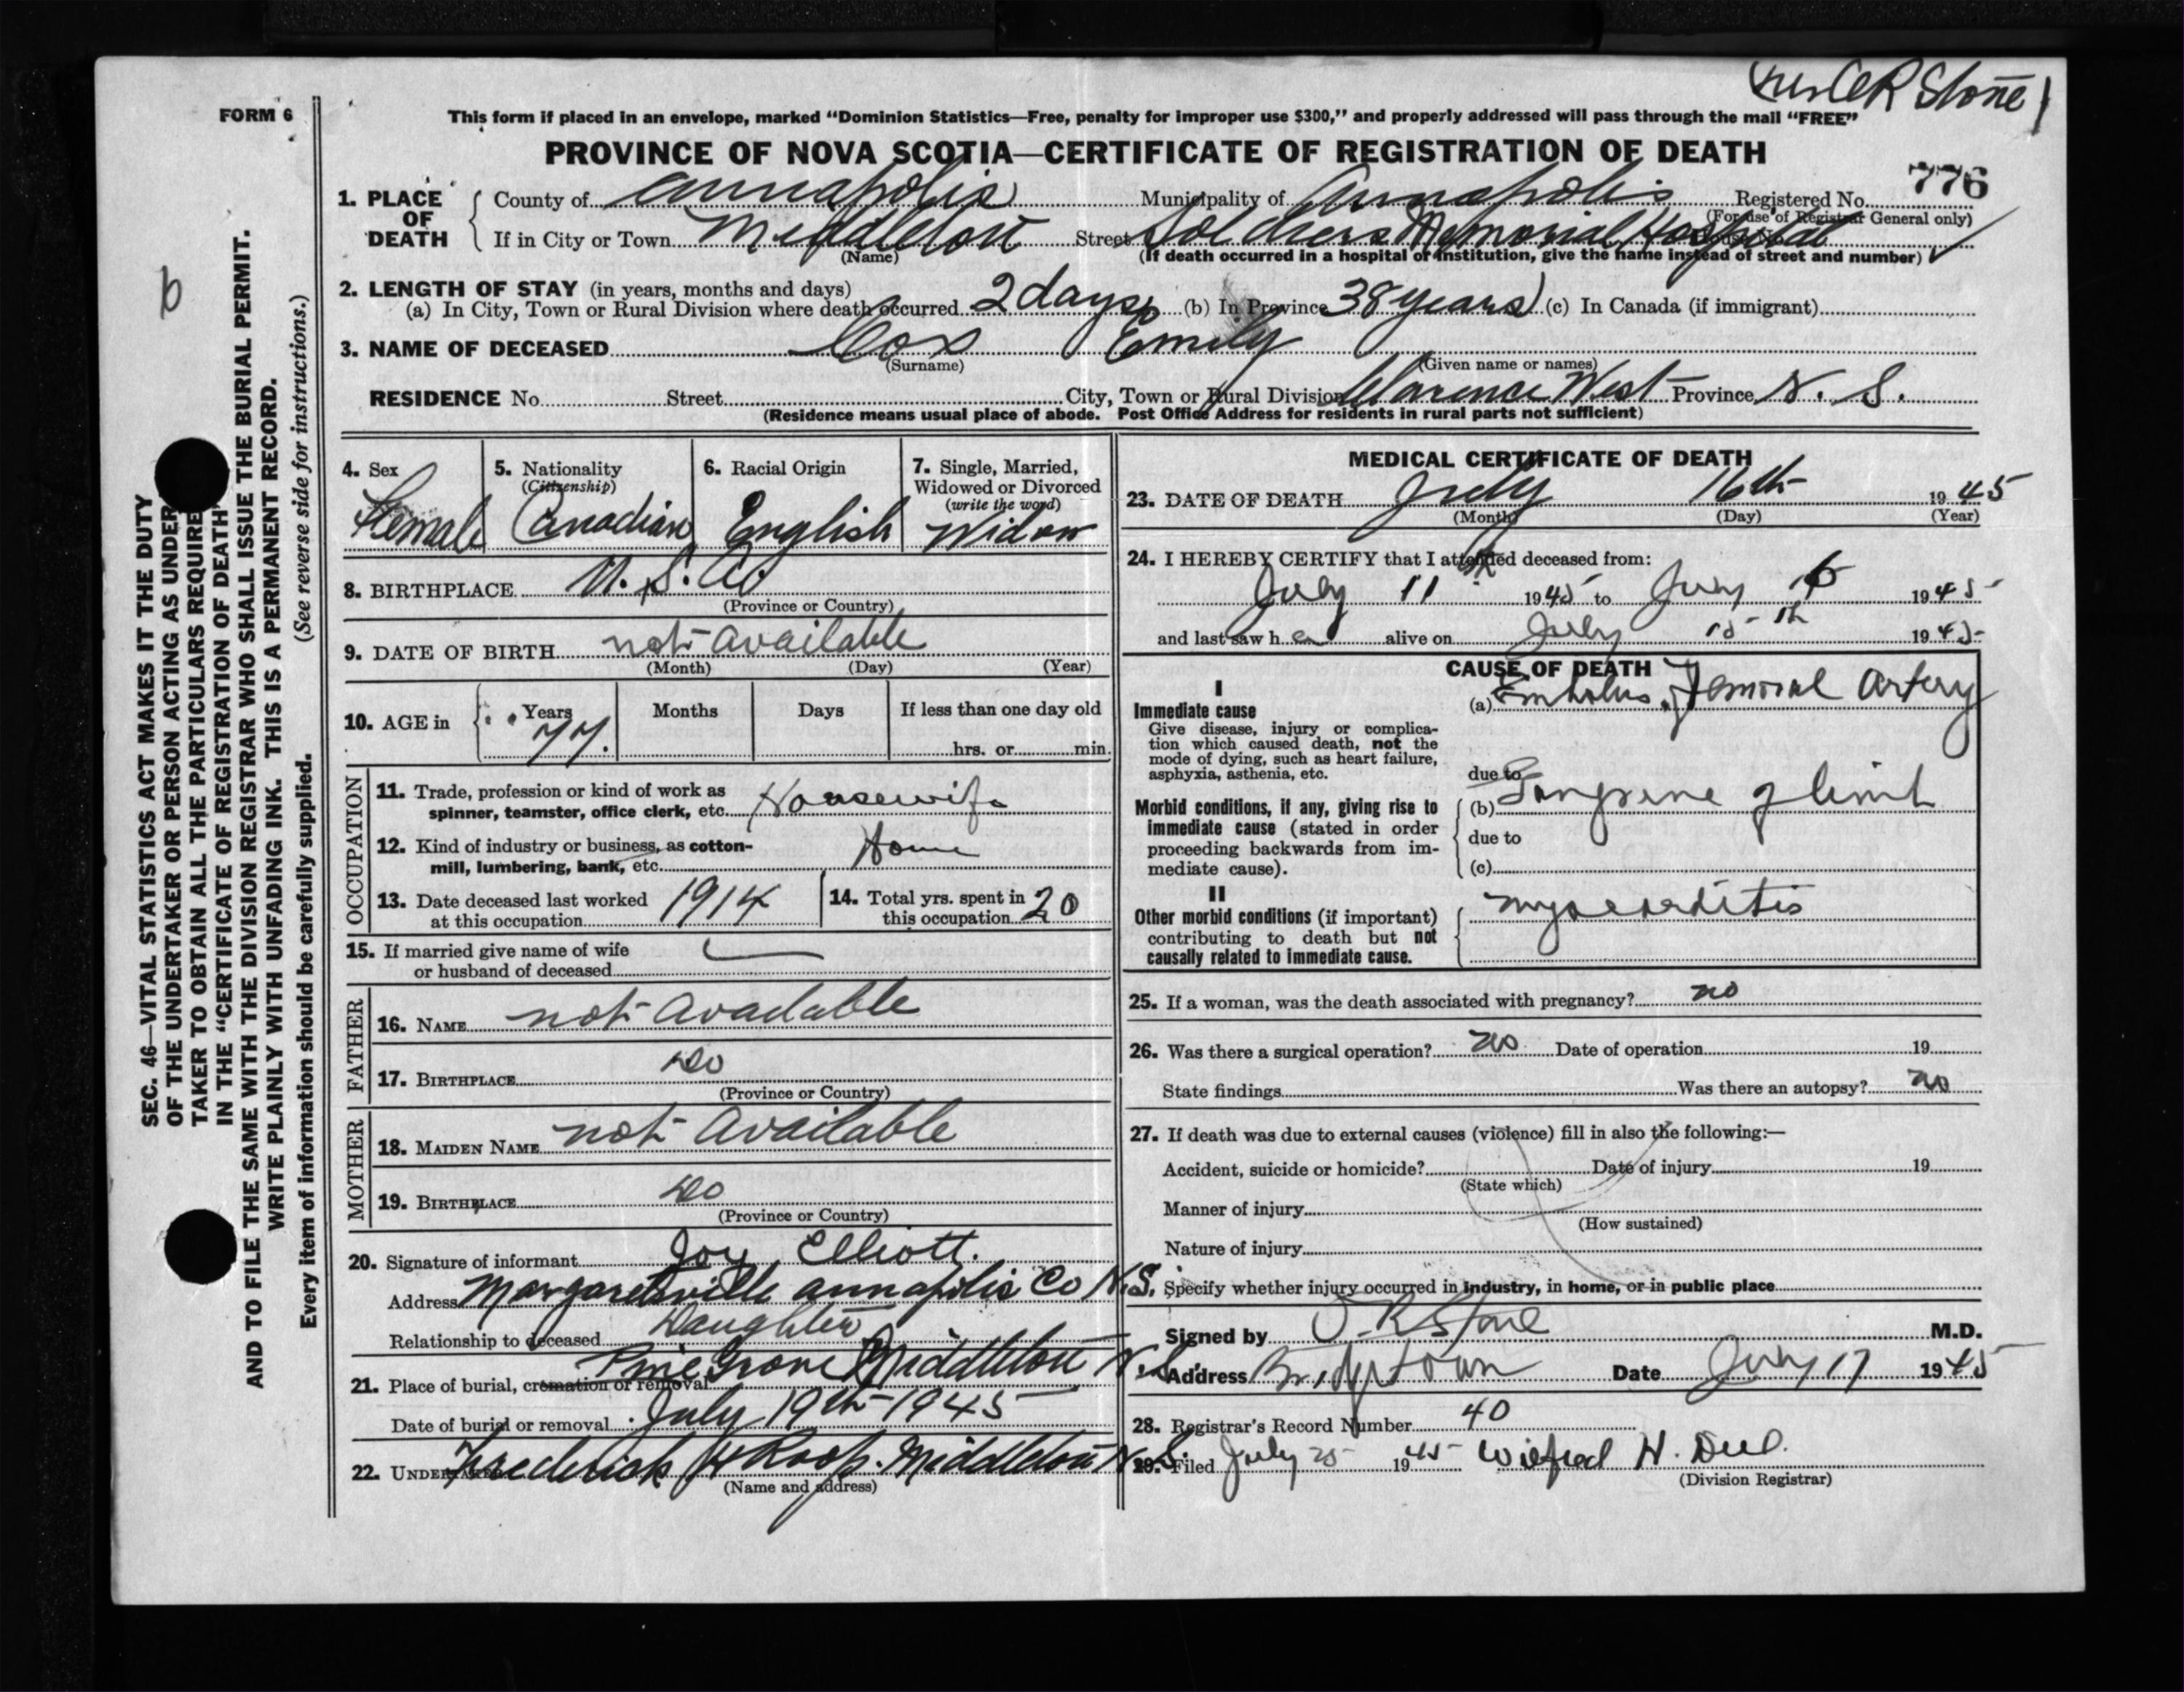 C R Stone
FORM 6
This form if placed in an envelope, marked "Dominion Statistics—Free, penalty for improper use $300," and properly addressed will pass through the mail "FREE"
PROVINCE OF NOVA SCOTIA—CERTIFICATE OF REGISTRATION OF DEATH
776
1. PLACE OF DEATH
County of Annapolis Municipality of Annapolis Registered No.
(For use of Registrar General only)
If in City or Town Middleton Street Soldiers Memorial Hospital
(Name) (If death occurred in a hospital or institution, give the name instead of street and number)
2. LENGTH OF STAY (in years, months and days)
(a) In City, Town or Rural Division where death occurred 2 days (b) In Province 38 years (c) In Canada (if immigrant)
3. NAME OF DECEASED Cox Emily
(Surname) (Given name or names)
RESIDENCE No. Street City, Town or Rural Division Clarence West Province N. S.
(Residence means usual place of abode. Post Office Address for residents in rural parts not sufficient)
4. Sex Female
5. Nationality (Citizenship) Canadian
6. Racial Origin English
7. Single, Married, Widowed or Divorced (write the word) Widow
8. BIRTHPLACE U. S. A.
(Province or Country)
9. DATE OF BIRTH not available
(Month) (Day) (Year)
10. AGE in Years 77. Months Days If less than one day old
hrs. or min.
OCCUPATION
11. Trade, profession or kind of work as
spinner, teamster, office clerk, etc. Housewife
12. Kind of industry or business, as cotton-
mill, lumbering, bank, etc. Home
13. Date deceased last worked
at this occupation 1914
14. Total yrs. spent in
this occupation 20
15. If married give name of wife
or husband of deceased
FATHER
16. NAME not available
17. BIRTHPLACE do
(Province or Country)
MOTHER
18. MAIDEN NAME not available
19. BIRTHPLACE do
(Province or Country)
20. Signature of informant Joy Elliott.
Address Margaretsville Annapolis Co N.S.
Relationship to deceased Daughter
21. Place of burial, cremation or removal Pine Grove Middleton N.S.
Date of burial or removal July 19th 1945
22. UNDERTAKER Frederick H Roop. Middleton N.S.
(Name and address)
MEDICAL CERTIFICATE OF DEATH
23. DATE OF DEATH July 16th 1945
(Month) (Day) (Year)
24. I HEREBY CERTIFY that I attended deceased from:
July 11th 1945 to July 16 1945
and last saw h er alive on July 15th 1945
CAUSE OF DEATH
I
Immediate cause
Give disease, injury or complica-
tion which caused death, not the
mode of dying, such as heart failure,
asphyxia, asthenia, etc.
(a) Embolus, Femoral Artery
due to
Morbid conditions, if any, giving rise to
immediate cause (stated in order
proceeding backwards from im-
mediate cause).
(b) Gangrene of limb
due to
(c)
II
Other morbid conditions (if important)
contributing to death but not
causally related to immediate cause.
myocarditis
25. If a woman, was the death associated with pregnancy? no
26. Was there a surgical operation? no Date of operation 19
State findings Was there an autopsy? no
27. If death was due to external causes (violence) fill in also the following:—
Accident, suicide or homicide? Date of injury 19
(State which)
Manner of injury
(How sustained)
Nature of injury
Specify whether injury occurred in industry, in home, or in public place
Signed by R Stone M.D.
Address Bridgetown Date July 17 1945
28. Registrar's Record Number 40
29. Filed July 25 1945 Wilfred H. Dul.
(Division Registrar)
SEC. 46—VITAL STATISTICS ACT MAKES IT THE DUTY
OF THE UNDERTAKER OR PERSON ACTING AS UNDER
TAKER TO OBTAIN ALL THE PARTICULARS REQUIRE
IN THE "CERTIFICATE OF REGISTRATION OF DEATH"
AND TO FILE THE SAME WITH THE DIVISION REGISTRAR WHO SHALL ISSUE THE BURIAL PERMIT.
WRITE PLAINLY WITH UNFADING INK. THIS IS A PERMANENT RECORD.
Every item of information should be carefully supplied. (See reverse side for instructions.)